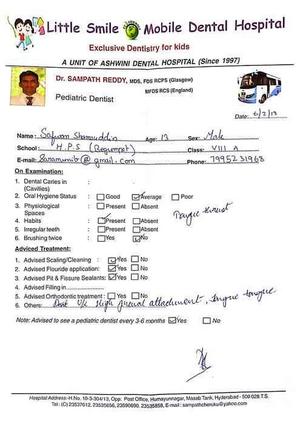 Little Smile Mobile Dental Hospital
Exclusive Dentistry for kids
A UNIT OF ASHWINI DENTAL HOSPITAL (Since 1997)
Dr. SAMPATH REDDY, MDS, FDS RCPS (Glasgow)
MFDS RCS (England)
Pediatric Dentist
Date: 6/2/13
Name: Age: 13 Sex: Male
School: H.P.S (Begumpet) Class: VIII A
E-mail: @gmail.com Phone: 7995231968
On Examination:
1. Dental Caries in :
(Cavities)
2. Oral Hygiene Status : Good Average Poor
3. Physiological : Present Absent
Spaces
4. Habits : Present Absent
5. Irregular teeth : Present Absent
6. Brushing twice : Yes No
Adviced Treatment:
1. Advised Scaling/Cleaning : Yes No
2. Advised Flouride application: Yes No
3. Advised Pit & Fissure Sealants: Yes No
4. Advised Filling
5. Advised Orthodontic treatment : Yes No
6. Others: High frenal attachment, tongue
Note: Advised to see a pediatric dentist every 3-6 months Yes No
Hospital Address:-H.No. 10-3-304/13, Opp: Post Office, Humayunnagar, Masab Tank, Hyderabad - 500 028 T.S.